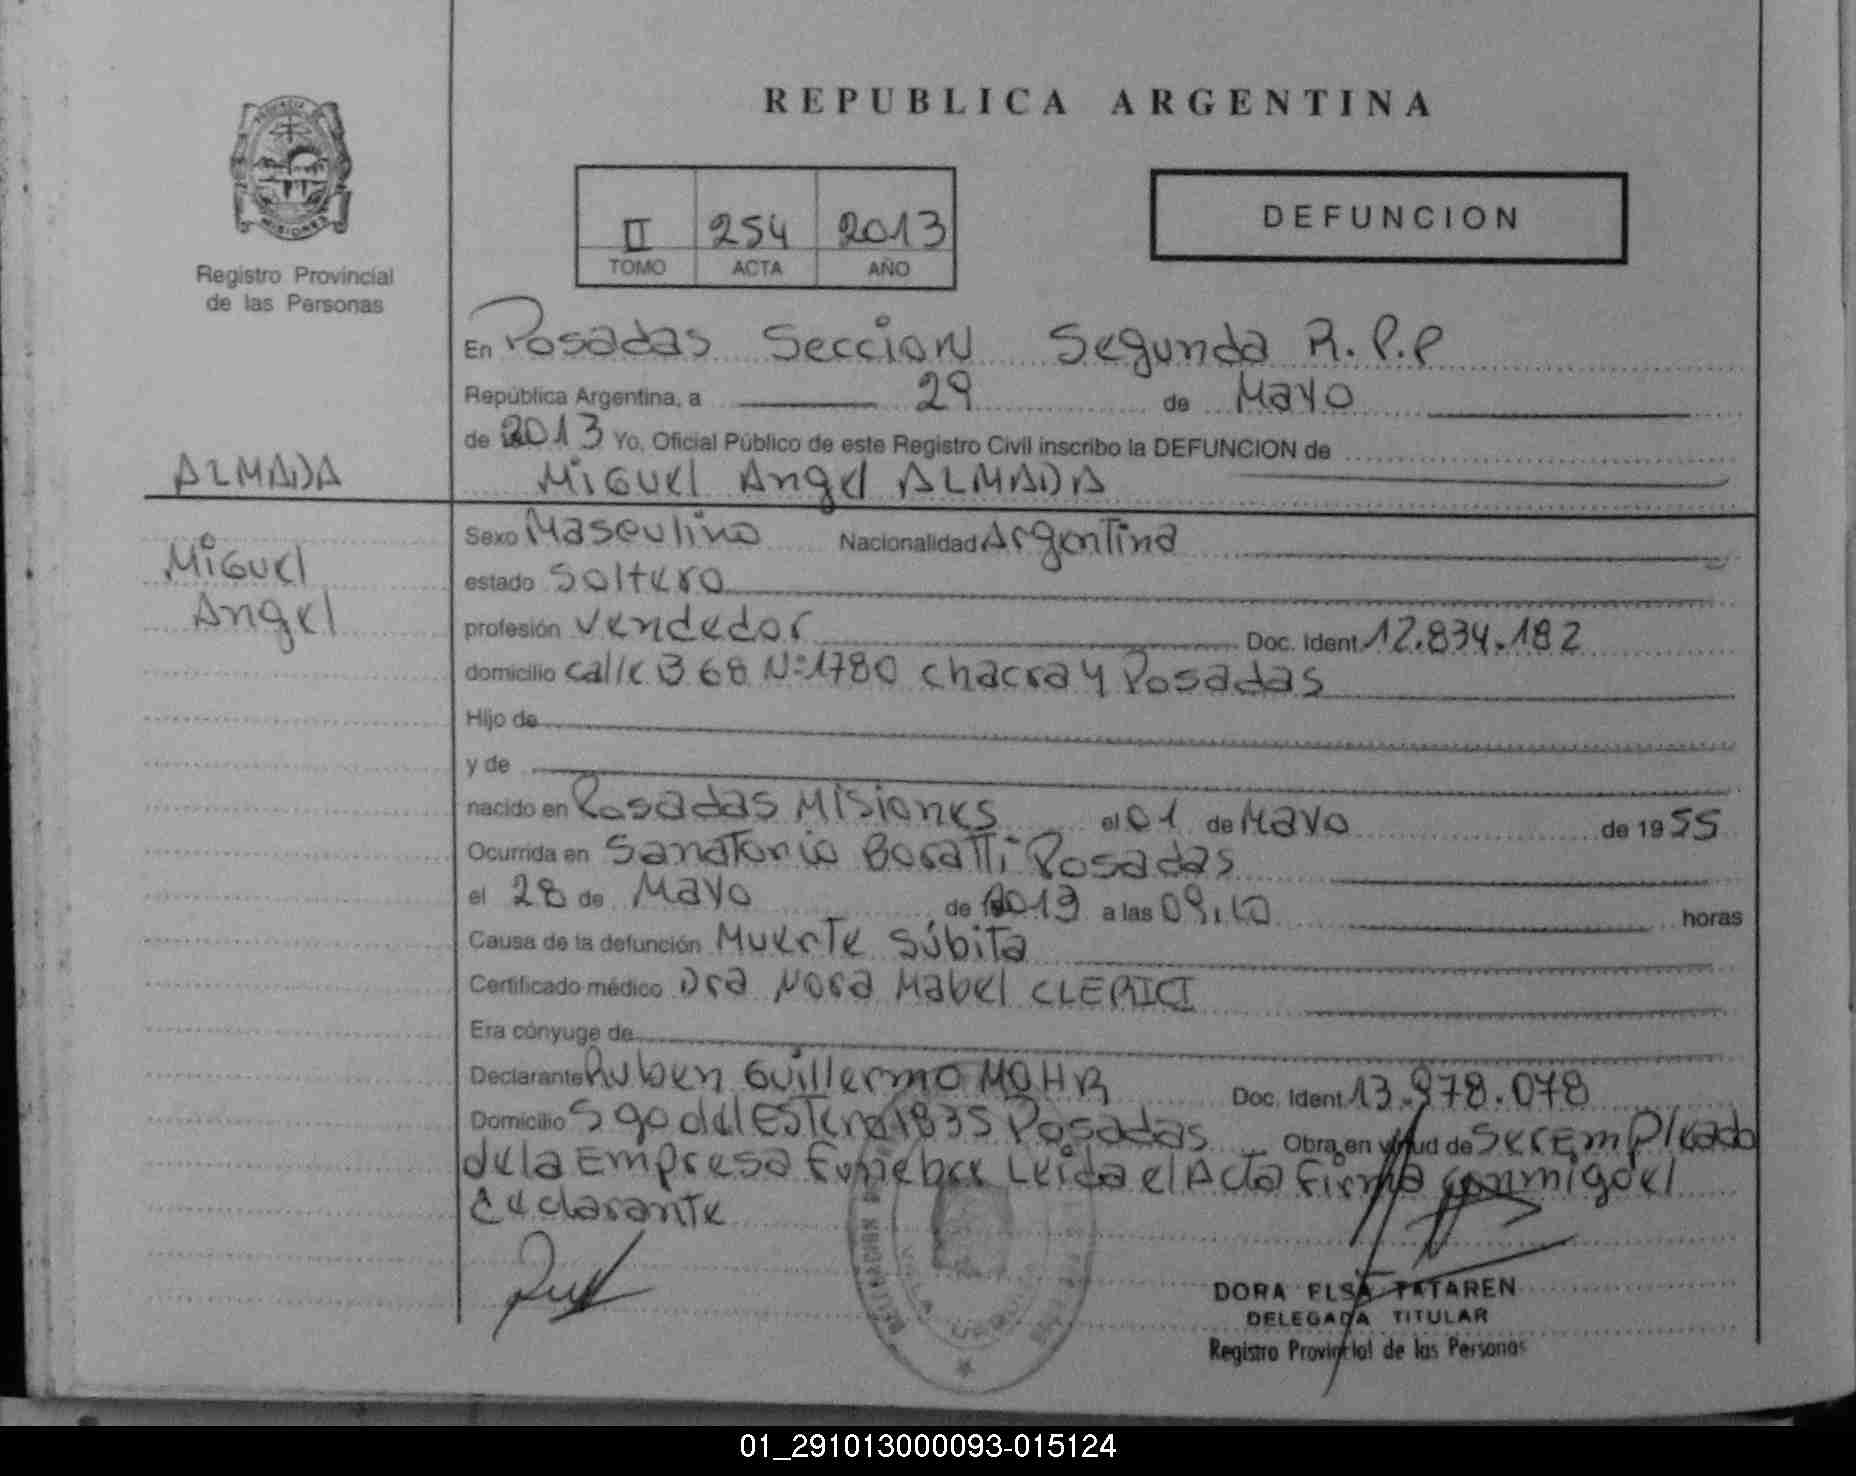 REPUBLICA ARGENTINA
MISIONES
Registro Provincial
de las Personas
II 254 2013
TOMO ACTA AÑO
DEFUNCION
En Posadas Seccion Segunda R.P.P
República Argentina, a 29 de Mayo
de 2013 Yo, Oficial Público de este Registro Civil inscribo la DEFUNCION de
ALMADA
Miguel Angel ALMADA
Miguel
Angel
Sexo Masculino Nacionalidad Argentina
estado Soltero
profesión Vendedor Doc. Ident 12.834.182
domicilio calle 368 Nº 1780 chacra 4 Posadas
Hijo de
y de
nacido en Posadas Misiones el 01 de Mayo de 1955
Ocurrida en Sanatorio Boratti Posadas
el 28 de Mayo de 2013 a las 09,10 horas
Causa de la defunción Muerte Súbita
Certificado médico Dra Nora Mabel CLERICI
Era cónyuge de
Declarante Ruben Guillermo MOHR Doc. Ident 13.978.078
Domicilio Sgo del Estero 1835 Posadas Obra en virtud de ser Empleado
de la Empresa Funebre Leida el Acta Firma conmigo el
declarante
DORA ELSA TATAREN
DELEGADA TITULAR
Registro Provincial de las Personas
01_291013000093-015124